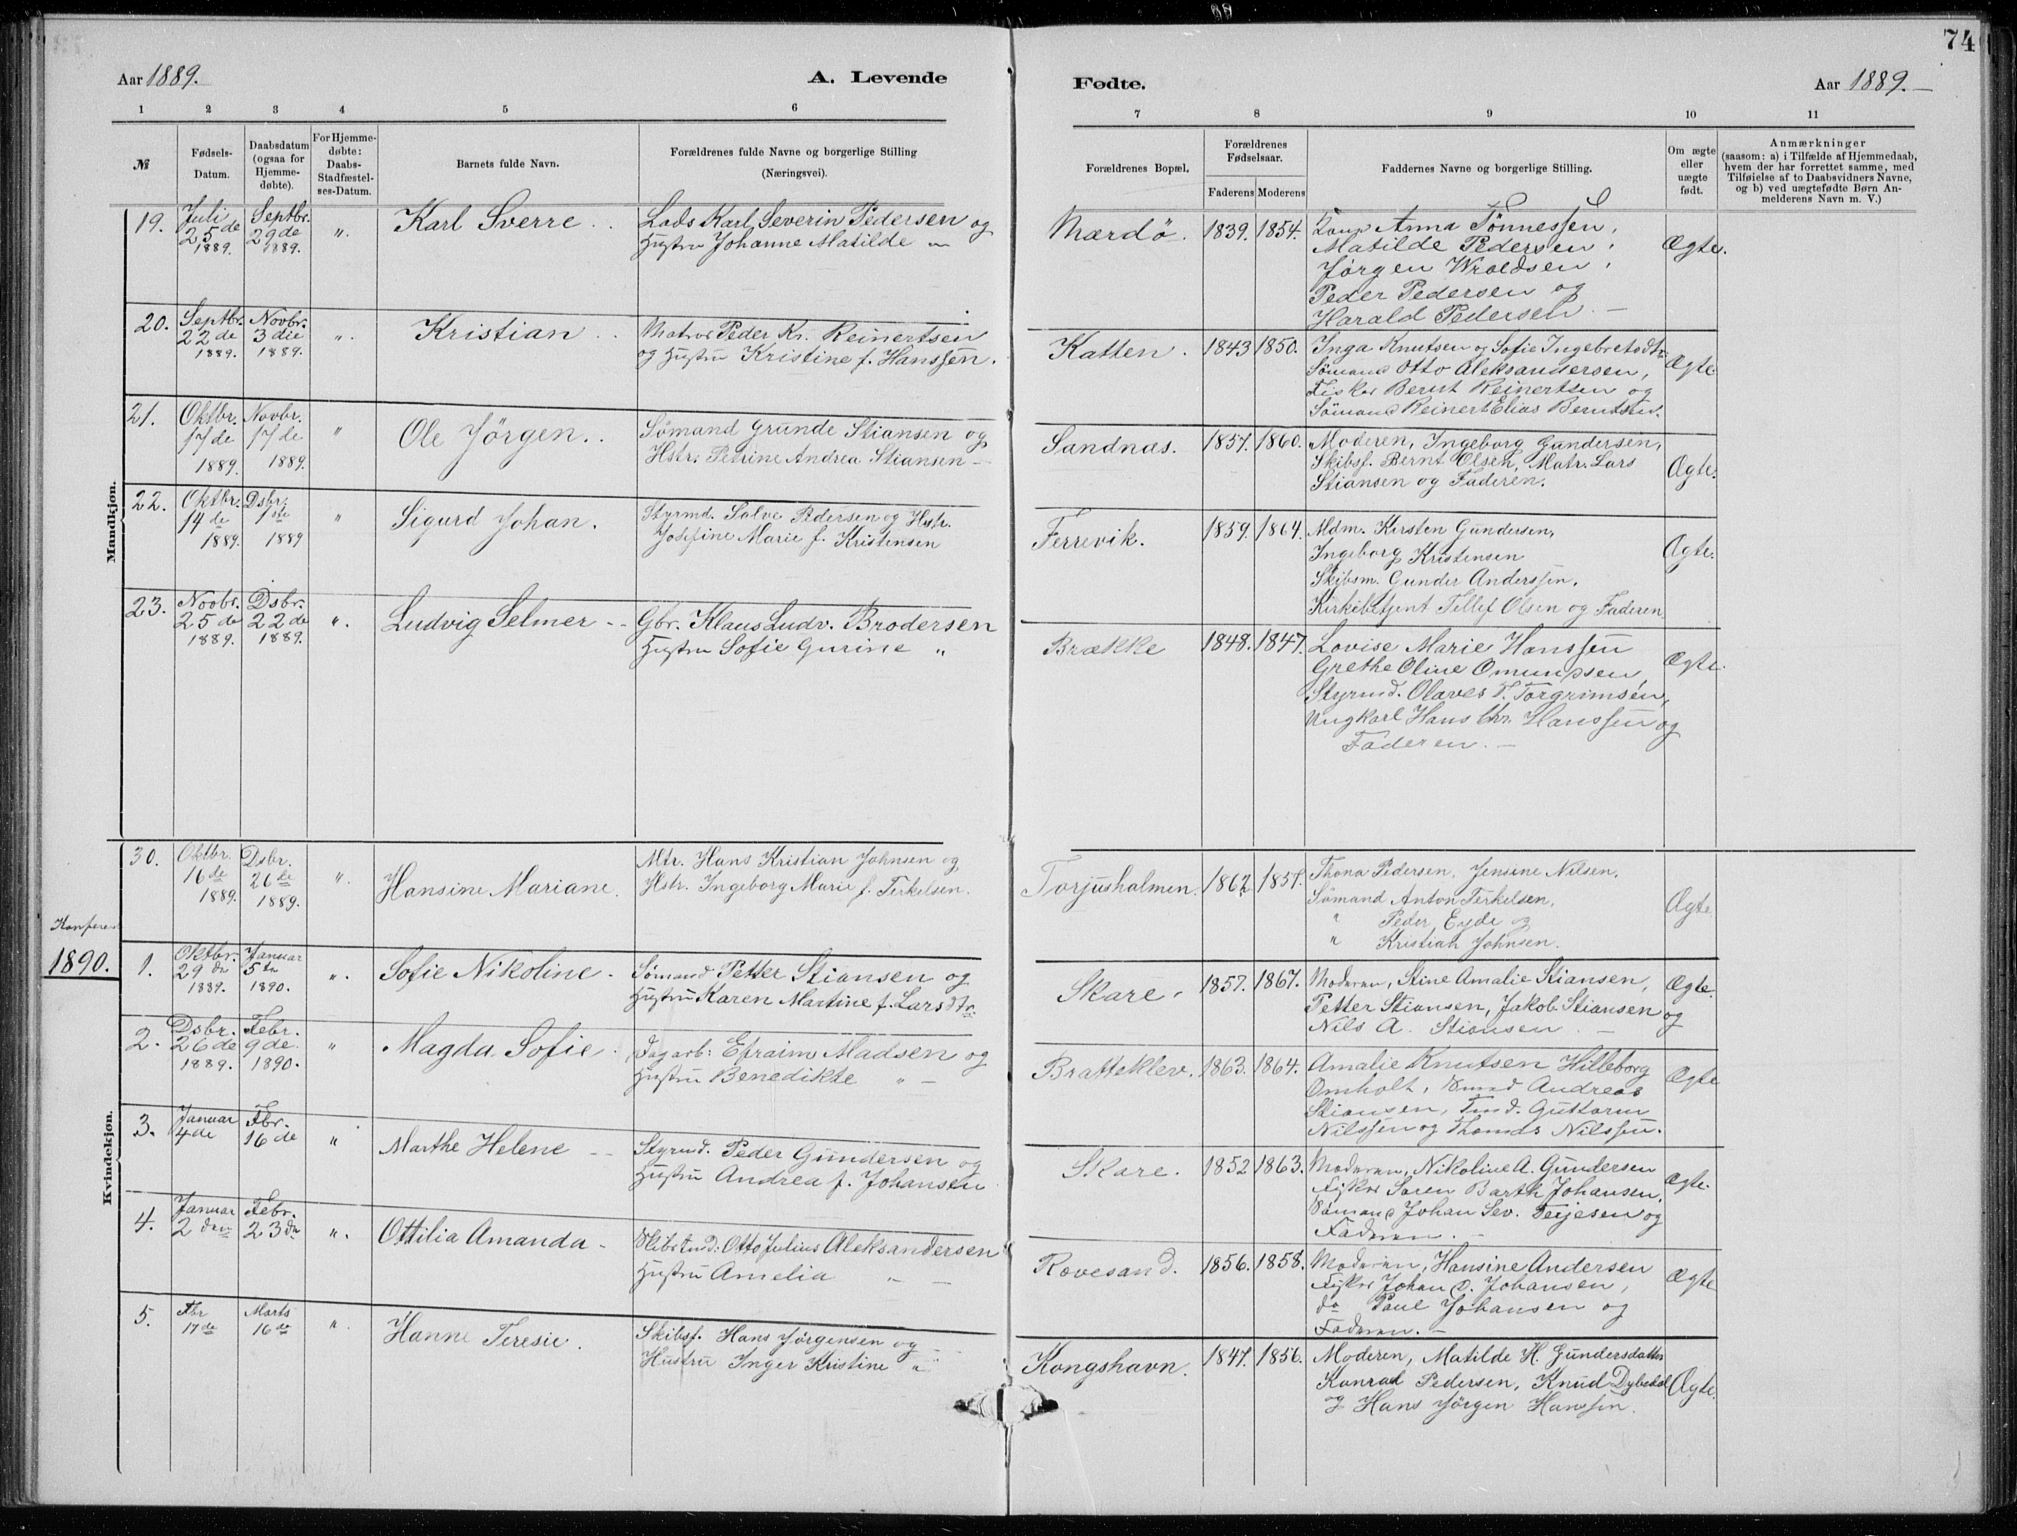 74
Aar 1889.
A. Levende
Fødte.
Aar 1889.
1 2 3 4 5 6 7 8 9 10 11
№
Fødsels-
Datum.
Daabsdatum
(ogsaa for
Hjemme-
døbte).
For Hjemme-
døbte:
Daabs-
Stadfæstel-
ses-Datum.
Barnets fulde Navn.
Forældrenes fulde Navne og borgerlige Stilling
(Næringsvei).
Forældrenes Bopæl.
Forældrenes
Fødselsaar.
Faderens Moderens
Faddernes Navne og borgerlige Stilling.
Om ægte
eller
uægte
født.
Anmærkninger
(saasom: a) i Tilfælde af Hjemmedaab,
hvem der har forrettet samme, med
Tilføielse af to Daabsvidners Navne,
og b) ved uægtefødte Børn An-
melderens Navn m. V.)
Mandkjøn.
19.
Juli
25de
1889.
Septbr.
29de
1889.
".
Karl Sverre
Lods Karl Severin Pedersen og
Hustru Johanne Matilde "
Mærdö.
1839. 1854.
Kone Anna Tönnessen,
Matilde Pedersen,
Jörgen Wroldsen,
Peder Pedersen og
Harald Pedersen. –
Ægte.
20.
Septbr.
22de
1889.
Novbr.
3die
1889.
".
Kristian
Matros Peder Kr. Reinertsen
og Hustru Kristine f. Hanssen.
Katten.
1843 1850.
Inga Knutsen og Sofie Ingebretsdtr
Sömand Otto Aleksandersen,
Fisker Bernt Reinertsen og
Sömand Reinert Elias Berntsen.
Ægte
21.
Oktbr.
17de
1889.
Novbr.
17de
1889.
"
Ole Jörgen
Sömand Grunde Stiansen og
Hstr. Petrine Andrea Stiansen –
Sandnæs.
1857. 1860.
Moderen, Ingeborg Gundersen,
Skibsf. Bernt Olsen, Matr. Lars
Stiansen og Faderen.
Ægte.
22.
Oktbr.
14de
1889.
Dsbr.
1ste
1889
"
Sigurd Johan.
Styrmd. Salve Pedersen og Hstr.
Josefine Marie f. Kristensen
Ferrevik.
1859. 1864.
Mdm. Kirsten Gundersen,
Ingeborg Kristensen
Skibsm. Gunder Anderssen.
Kirkebetjent Tellef Olsen og Faderen
Ægte.
23.
Novbr.
25de
1889.
Dsbr.
22de
1889.
".
Ludvig Selmer
Gbr. Klaus Ludv. Brodersen
Hustru Sofie Gurine "
Brække
1848. 1847.
Lovise Marie Hanssen
Grethe Oline Omundsen,
Styrmd. Olaves T. Torgrimsen,
Ungkarl Hans Chr. Hanssen og
Faderen. –
Ægte.
Kvindekjøn.
30.
Oktbr.
16de
1889.
Dsbr.
26de
1889.
".
Hansine Mariane.
Mtr. Hans Kristian Johnsen og
Hstr. Ingeborg Marie f. Terkelsen.
Torjusholmen.
1862 1857.
Thona Pedersen, Jensine Nilsen,
Sömand Anton Terkelsen,
" Peder Eyde og
" Kristian Johnsen.
Ægte
1890.
1.
Oktbr.
29de
1889.
Januar
5te
1890.
".
Sofie Nikoline
Sömand Petter Stiansen og
Hustru Karen Martine f. Larsdtr.
Skare
1857. 1867.
Moderen, Stine Amalie Stiansen,
Petter Stiansen, Jakob Stiansen og
Nils A. Stiansen –
Ægte.
2.
Dsbr.
26de
1889.
Febr.
9de
1890.
"
Magda Sofie
Dagarb: Efraim Madsen og
Hustru Benedikte " –
Bratteklev.
1863. 1864.
Amalie Knutsen Hilleborg
Omholt, Andreas
Stiansen, Guttorm
Nilssen og Thomas Nilssen.
Ægte
3.
Januar
4de
Fbr.
16de
"
Marthe Helene
Styrmd. Peder Gundersen og
Hustru Andrea f. Johansen
Skare.
1852 1863.
Moderen, Nikoline A. Gundersen
Fisker Soren Barth Johansen,
Sömand Johan Sev. Terjesen og
Faderen. –
Ægte.
4.
Januar
2den
Febr.
23de
".
Ottilia Amanda
Skibstmd: Otto Julius Aleksandersen
Hustru Amelia " –
Rævesand.
1856. 1858.
Moderen, Hansine Andersen
Fisker Johan C. Johansen,
do Paul Johansen og
Faderen. –
Ægte
5.
Fbr
17de
Marts
16de
".
Hanne Teresie.
Skibsf. Hans Jörgensen og
Hustru Inger Kristine "
Kongshavn.
1847. 1856.
Moderen, Matilde H. Gundersdatter
Konrad Pedersen, Knud Dybedal
og Hans Jörgen Hanssen.
Ægte.